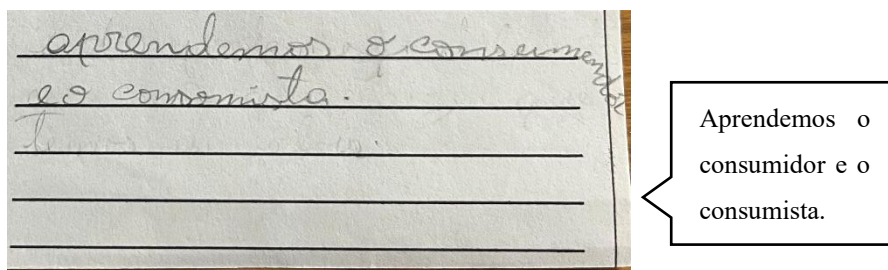 aprendemos o consumendor
e o consomista.
Aprendemos o
consumidor e o
consumista.